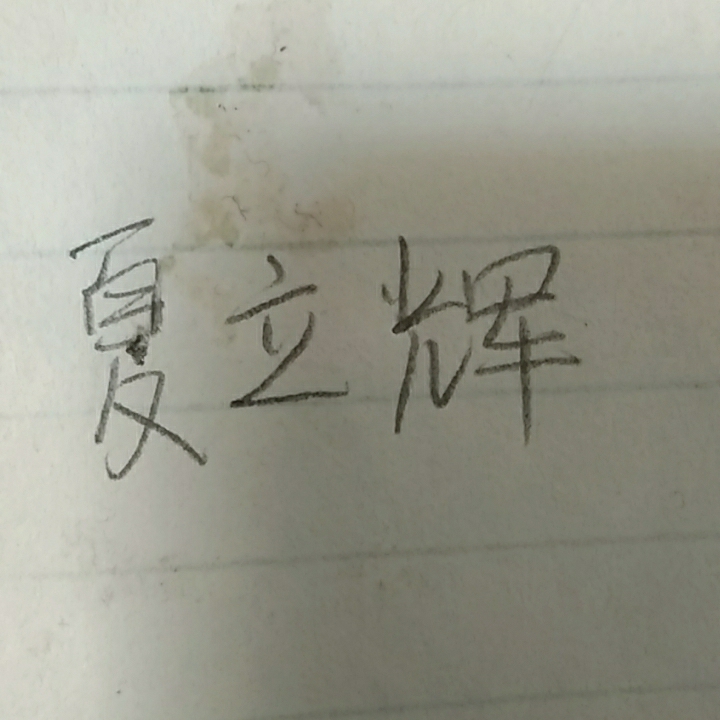 夏立辉